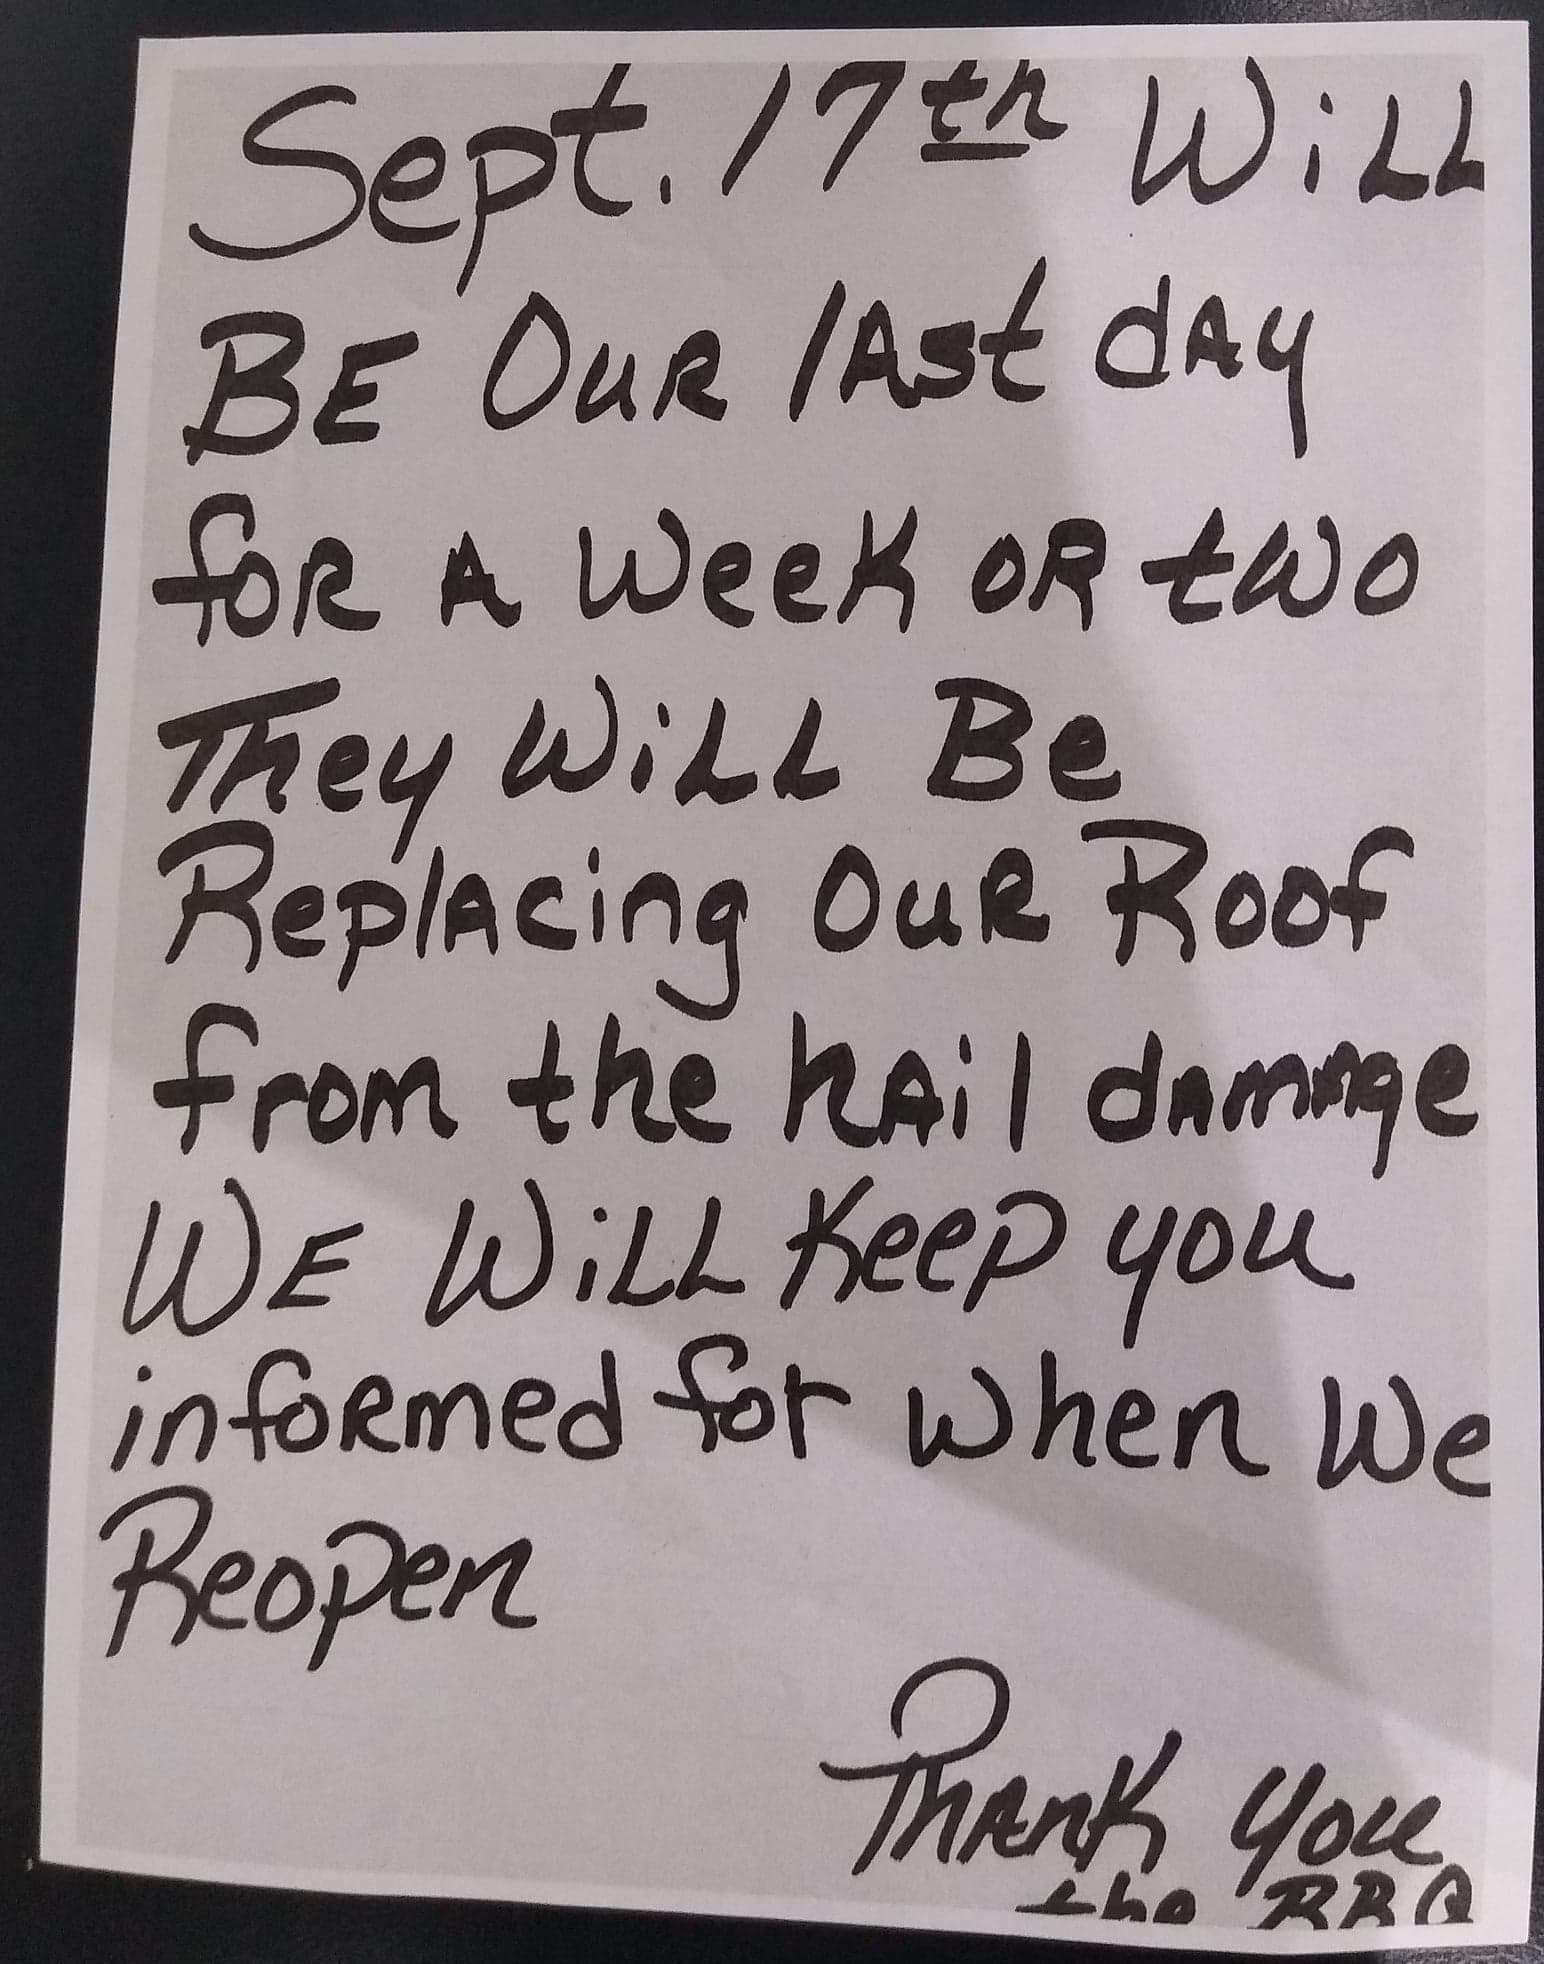 Sept. 17th Will
BE OUR lAst dAy
foR A Week OR two
They WiLL Be
ReplAcing OuR Roof
from the hAil dAmAge
WE WiLL Keep you
infoRmed for when We
Reopen
ThAnk you
the BBQ